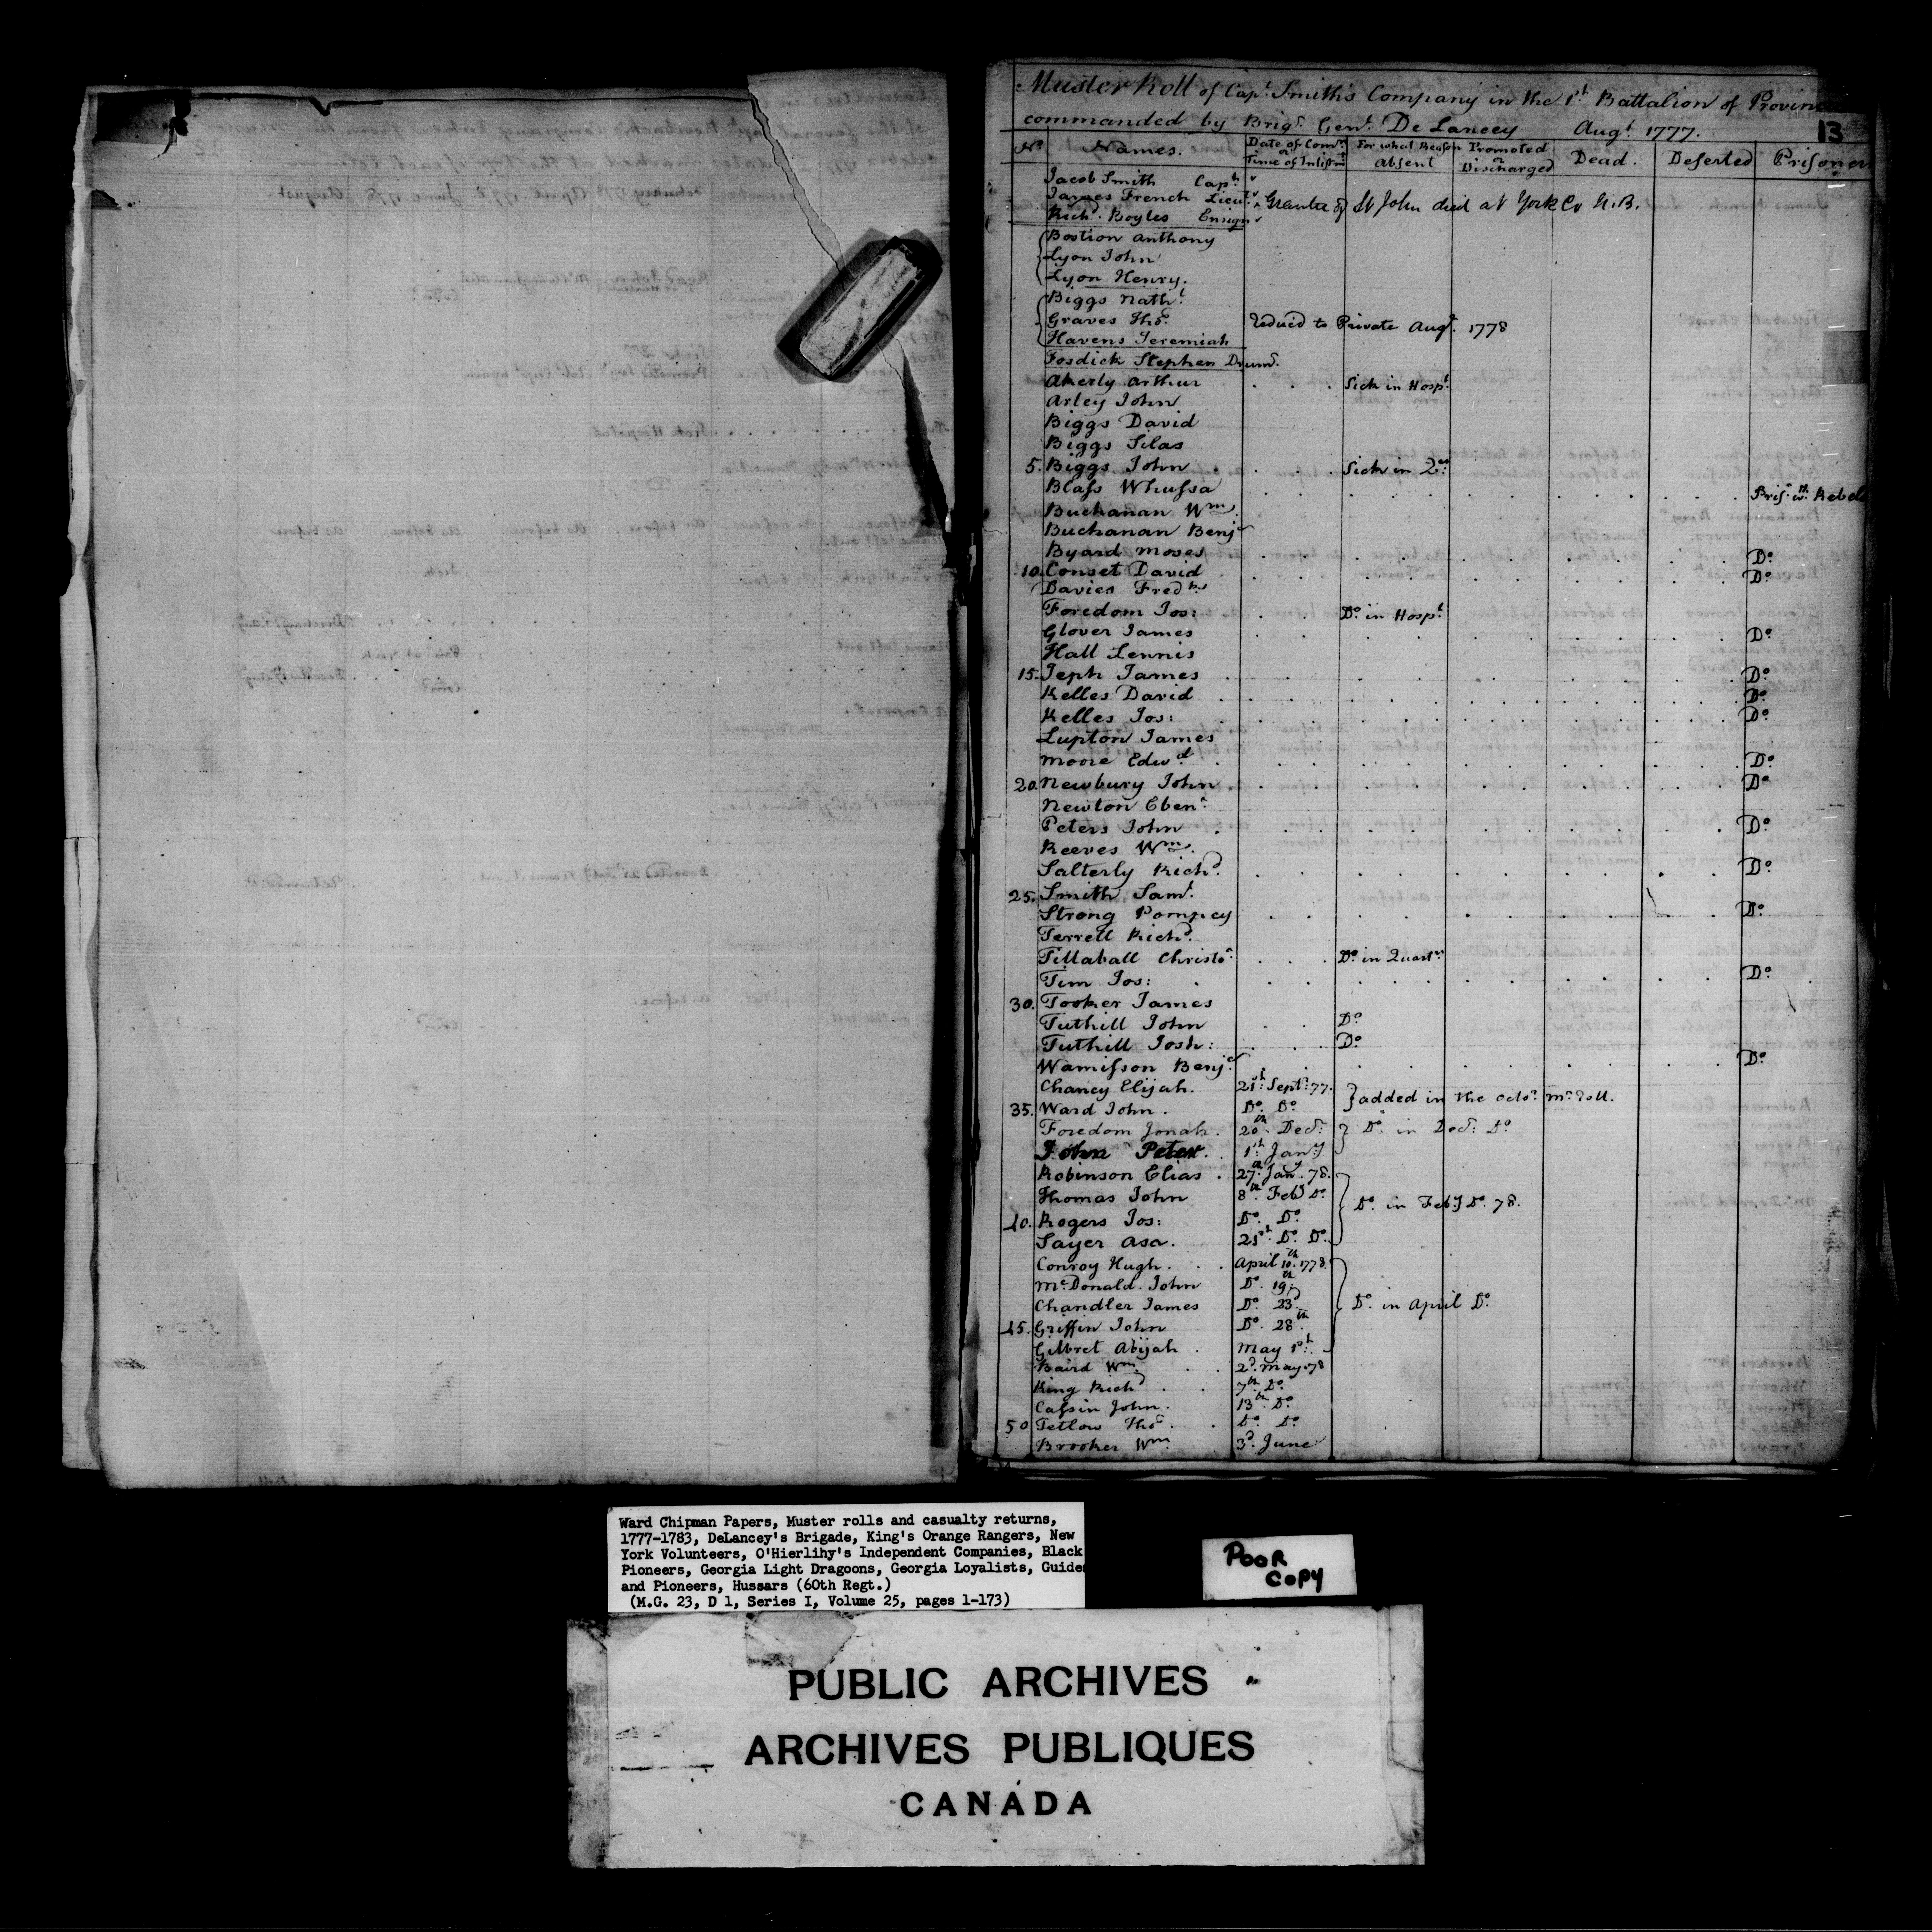 Muster Roll of Capt. Smith's Company in the 1st Battalion of
commanded by Brigr. Genl. De Lancey Augt. 1777.
13
No. Names. Date of Comn. or Time of Inlistmt. For what Reason Absent Promoted or Discharged Dead. Deserted Prisoner
Jacob Smith Capt.
James French Lieut. Grantee of St John died at York Co N.B.
Richd. Boyles Ensign
Bostion Anthony
Lyon John
Lyon Henry.
Biggs Nathl.
Graves Thos. reduc'd to Private Augt. 1778
Havens Jeremiah
Fosdick Stephen Drumr.
Akerly Arthur Sick in Hospl.
Arley John
Biggs David
Biggs Silas
5. Biggs John Sick in Qrs.
Blass Whussa Prisr. wth. Rebels
Buchanan Wm.
Buchanan Benjn.
Byard Moses Do.
10. Conset David Do.
Davies Fredk.
Foredom Jos: Do. in Hospl.
Glover James Do.
Hall Lennis
15. Jeph James Do.
Kelles David Do.
Kelles Jos: Do.
Lupton James
Moore Edwd. Do.
20. Newbury John Do.
Newton Ebenr.
Peters John Do.
Reeves Wm.
Salterly Richd. Do.
25. Smith Saml.
Strong Pompey Do.
Terrell Richd.
Tillaball Christor. Do. in Quartrs.
Tim Jos: Do.
30. Tooker James
Tuthill John Do.
Tuthill Josh: Do.
Wamisson Benjn. Do.
Chancy Elijah. 21st. Sept. 77. } added in the Octor. Mr. Roll.
35. Ward John. Do. Do.
Foredom Jonah. 20th. Decr. } Do. in Decr. Do.
John Peter. 1st. Jany.
Robinson Elias. 27th. Jany. 78.
Thomas John 8th. Feby. Do. } Do. in Feby. Do. 78.
40. Rogers Jos: Do. Do.
Sayer Asa. 21st. Do. Do.
Conroy Hugh. April 10th. 1778.
McDonald. John Do. 19th.
Chandler James Do. 23d. } Do. in April Do.
45. Griffin John Do. 28th.
Gilbret Abijah. May 1st.
Baird Wm. 2d. May 78
King Richd. 7th. Do.
Cassin John. 13th. Do.
50 Tetlow Thos. Do. Do.
Brooker Wm. 3d. June
Ward Chipman Papers, Muster rolls and casualty returns,
1777-1783, DeLancey's Brigade, King's Orange Rangers, New
York Volunteers, O'Hierlihy's Independent Companies, Black
Pioneers, Georgia Light Dragoons, Georgia Loyalists, Guides
and Pioneers, Hussars (60th Regt.)
(M.G. 23, D 1, Series I, Volume 25, pages 1-173)
POOR
COPY
PUBLIC ARCHIVES
ARCHIVES PUBLIQUES
CANADA